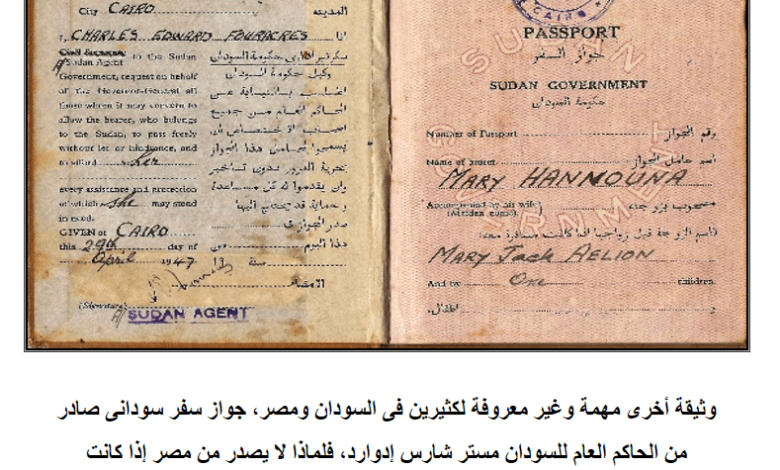 City CAIRO المدينة
I, CHARLES EDWARD FOURACRES انا
Civil Secretary to the Sudan
A/Sudan Agent
Government, request on behalf
of the Governor-General all
those whom it may concern to
allow the bearer, who belongs
to the Sudan, to pass freely
without let or hindrance, and
to afford her
every assistance and protection
of which she may stand
in need.
GIVEN at CAIRO
this 29th day of
April 1947
(Signature)
A/ SUDAN AGENT
سكرتير ادارى حكومة السودان
وكيل حكومة السودان
اطلب بالنيابة عن
الحاكم العام من جميع
يسمحوا لحامل هذا الجواز
بحرية المرور بدون تأخير
وان يقدموا له كل مساعدة
وحماية قد يحتاج اليها
صدر الجواز فى
هذا اليوم من
سنة
الامضاء
CAIRO
PASSPORT
جواز السفر
SUDAN GOVERNMENT
حكومة السودان
Number of Passport رقم الجواز
Name of bearer اسم حامل الجواز
MARY HANNOUNA
Accompanied by his wife مصحوب بزوجته
(Maiden name)
(اسم الزوجة قبل زواجها اذا كانت مسافرة معه)
MARY Jack AELION
And by One children.
اطفال.
وثيقة أخرى مهمة وغير معروفة لكثيرين فى السودان ومصر، جواز سفر سودانى صادر
من الحاكم العام للسودان مستر شارس إدوارد، فلماذا لا يصدر من مصر إذا كانت